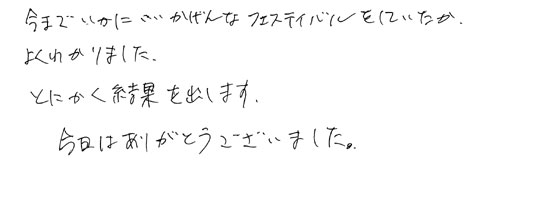 今までいかにいいかげんなフェスティバルをしていたか.
よくわかりました.
とにかく結果を出します.
今日はありがとうございました。